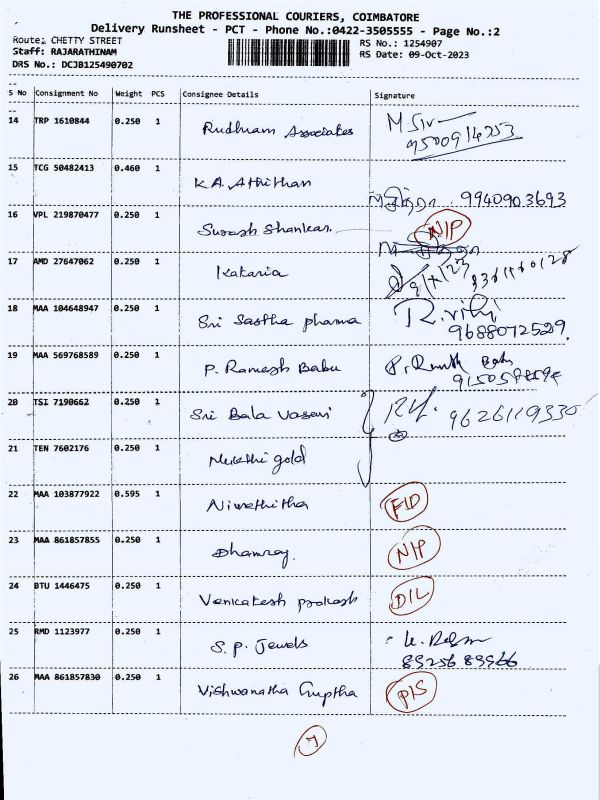 THE PROFESSIONAL COURIERS, COIMBATORE
Delivery Runsheet - PCT - Phone No.:0422-3505555 - Page No.:2
Route: CHETTY STREET
Staff: RAJARATHINAM
DRS No.: DCJB125490702
RS No.: 1254907
RS Date: 09-Oct-2023
S No Consignment No Weight PCS Consignee Details Signature
14 TRP 1610844 0.250 1 Rudhram Associates M Siv
9500914253
15 TCG 50482413 0.460 1 K.A. Athithan
9940903693
16 VPL 219870477 0.250 1 Suresh Shankar N/P
17 AMD 27647062 0.250 1 Kataria
18 MAA 104648947 0.250 1 Sri Sastha pharma R.
9688072529
19 MAA 569768589 0.250 1 P. Ramesh Babu P. Babu
20 TSI 7190662 0.250 1 Sri Bala Vasavi 9626119330
21 TEN 7602176 0.250 1 gold
22 MAA 103877922 0.595 1 Nivethitha
23 MAA 861857855 0.250 1 Dhamraj. N/P
24 BTU 1446475 0.250 1 Venkatesh prakash D/L
25 RMD 1123977 0.250 1 S.P. Jewels
89256 89966
26 MAA 861857830 0.250 1 Vishwanatha Guptha P/S
7